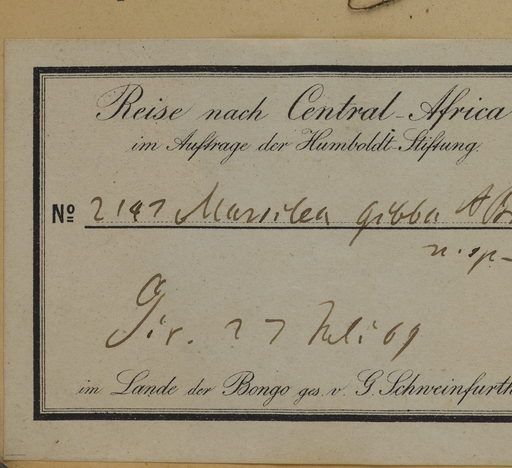 Reise nach Central-Africa
im Auftrage der Humboldt-Stiftung.
Nº 2147 Marsilea gibba A Br
n. sp.
Gir. 27 Juli 69
im Lande der Bongo ges. v. G. Schweinfurth